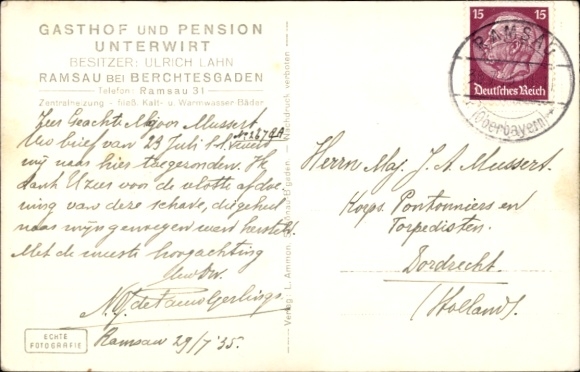 GASTHOF UND PENSION
UNTERWIRT
BESITZER: ULRICH LAHN
RAMSAU BEI BERCHTESGADEN
Telefon: Ramsau 31
Zentralheizung - fließ. Kalt- u. Warmwasser Bäder
Zeer Geachte Majoor Mussert
Uw brief van 23 Juli l.l. werd
mij naar hier toegezonden. Ik
dank U zeer voor de vlotte afdoe-
ning van deze schade, die geheel
naar mijn genoegen werd hersteld.
Met de meeste hoogachting
Uw Dw.
Ramsau 29/7 '35.
ECHTE
FOTOGRAFIE
Verlag: L. Ammon,
verboten
15 15
Deutsches Reich
RAMSAU
(Oberbayern)
Herrn Maj. J. A. Mussert.
Korps Pontonniers en
Torpedisten.
Dordrecht.
(Holland).